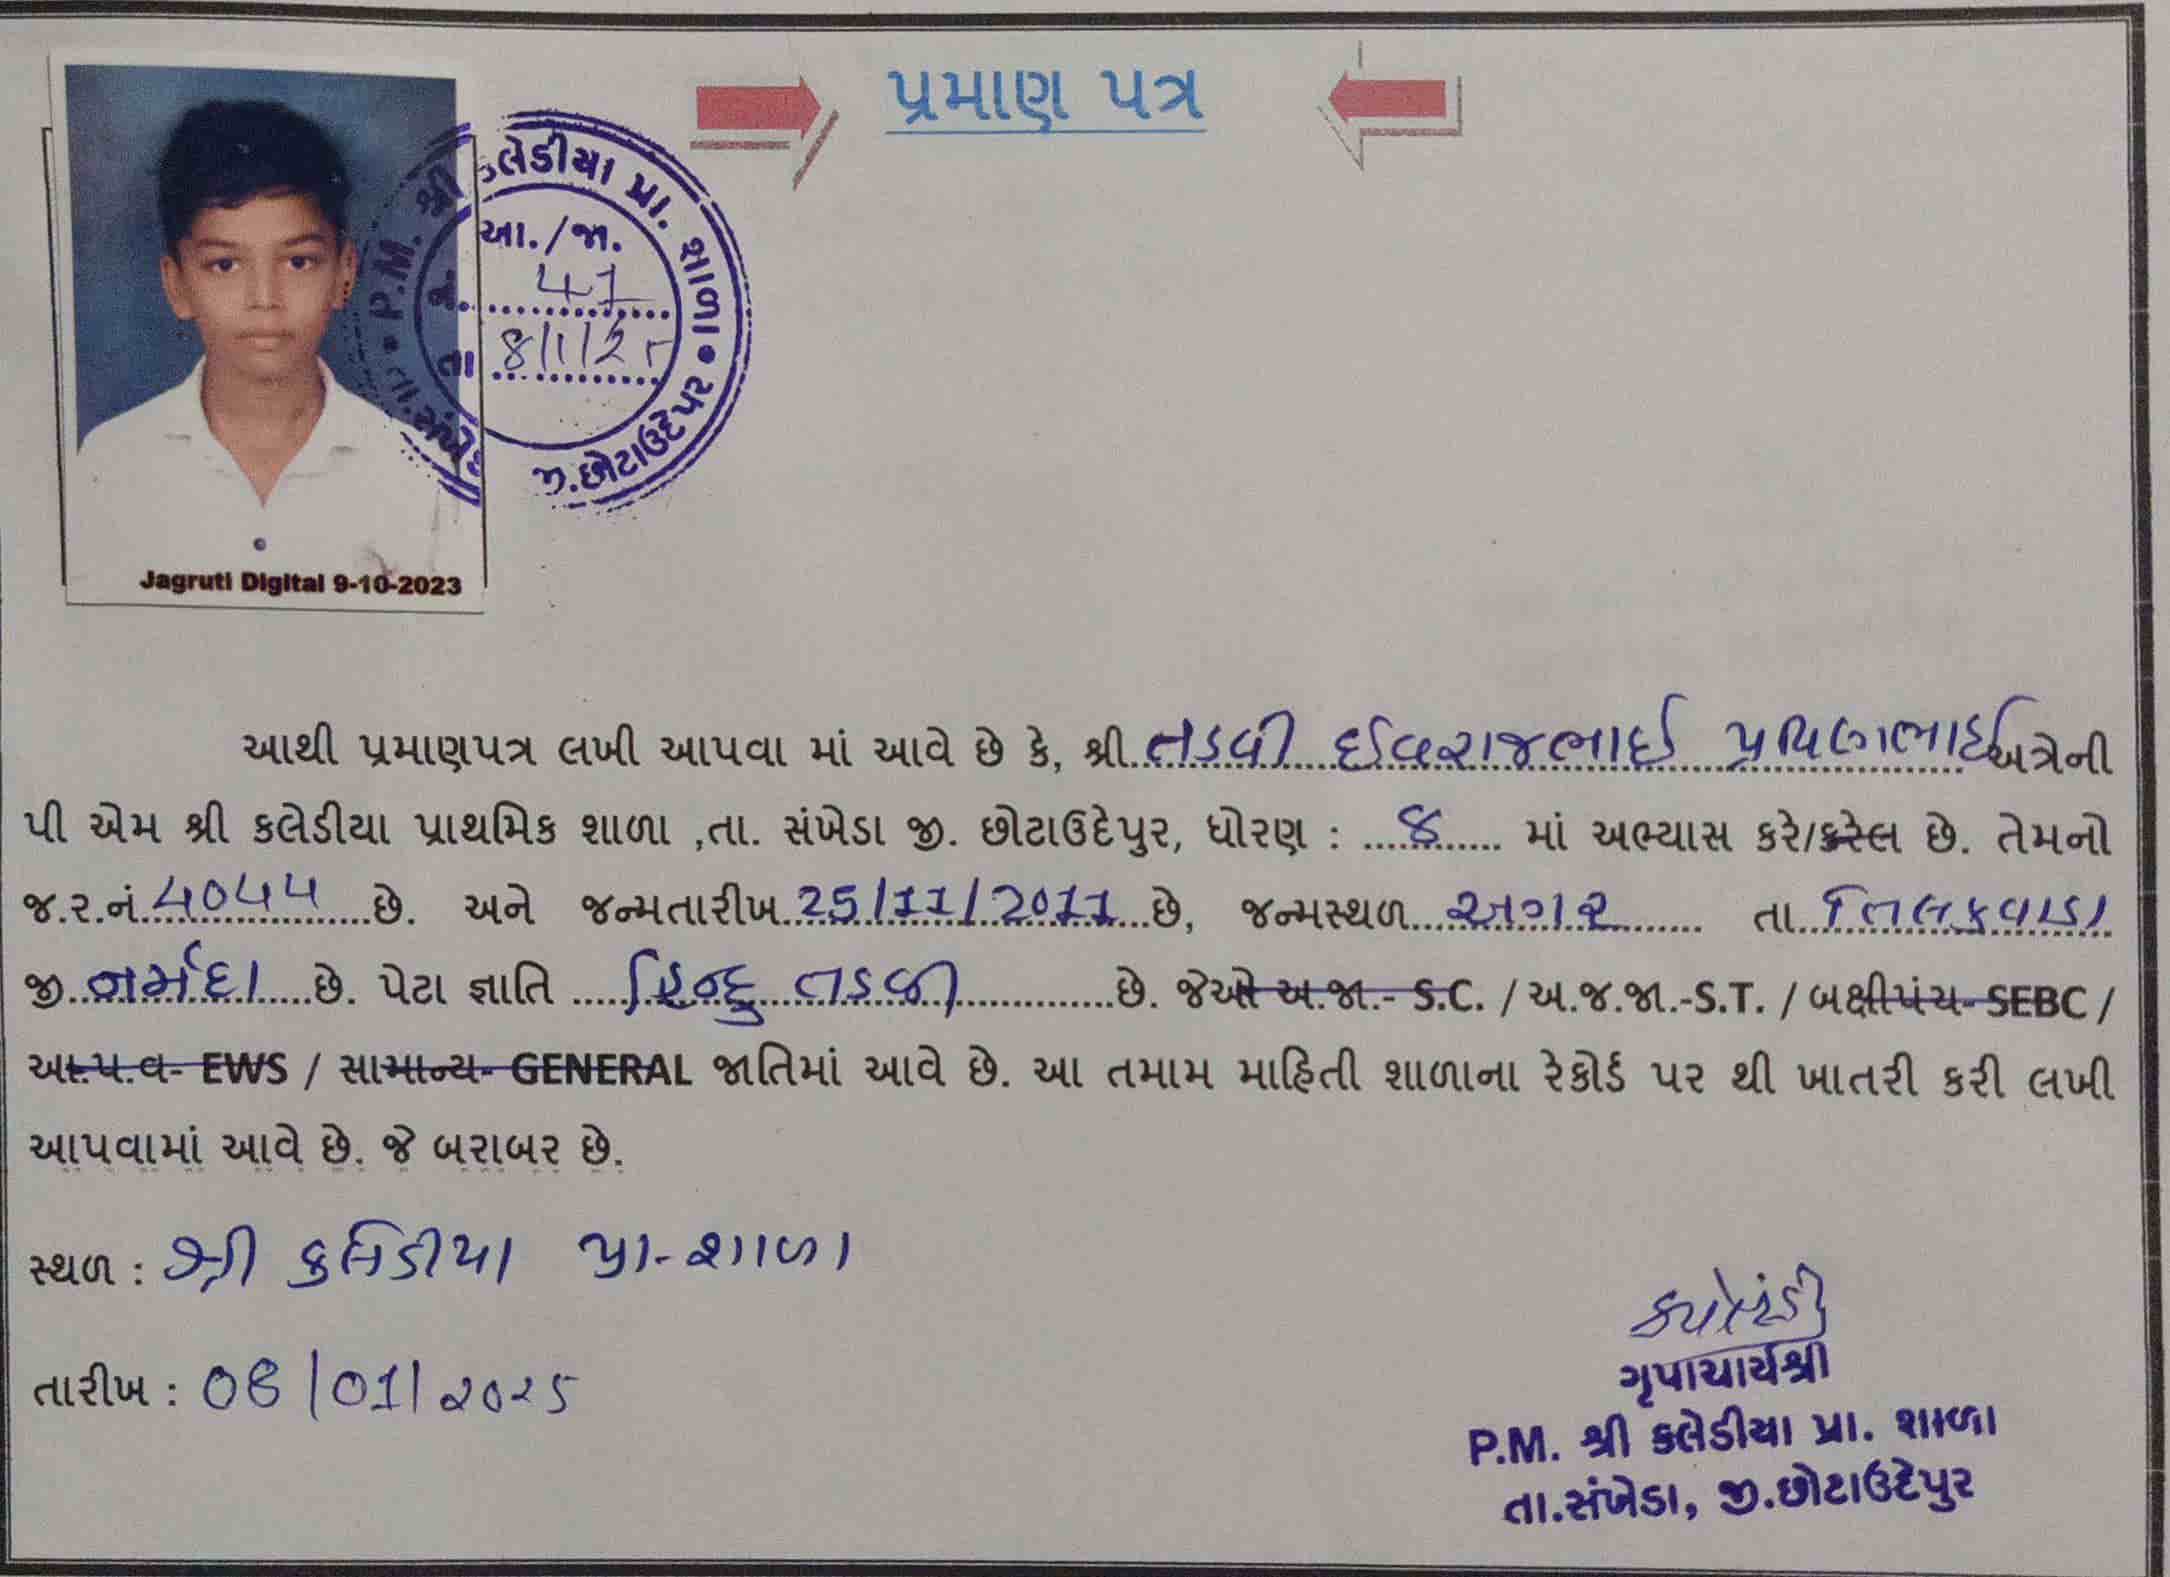 પ્રમાણ પત્ર
P.M. શ્રી કલેડીયા પ્રા. શાળા • તા.સંખેડા જી.છોટાઉદેપુર •
આ./જા.
નં. 41
તા 8/1/25
Jagruti Digital 9-10-2023
આથી પ્રમાણપત્ર લખી આપવા માં આવે છે કે, શ્રી તડવી દેવરાજભાઈ પ્રવિણભાઈ અત્રેની
પી એમ શ્રી કલેડીયા પ્રાથમિક શાળા ,તા. સંખેડા જી. છોટાઉદેપુર, ધોરણ : ....૪..... માં અભ્યાસ કરે/કરેલ છે. તેમનો
જ.ર.નં. ૫૦૫૫ છે. અને જન્મતારીખ 25/11/2011 છે, જન્મસ્થળ અગર તા. તિલકવાડા
જી. નર્મદા છે. પેટા જ્ઞાતિ હિન્દુ તડવી છે. જેઓ અ.જા.- S.C. / અ.જ.જા.-S.T. / બક્ષીપંચ- SEBC /
આ.પ.વ- EWS / સામાન્ય- GENERAL જાતિમાં આવે છે. આ તમામ માહિતી શાળાના રેકોર્ડ પર થી ખાતરી કરી લખી
આપવામાં આવે છે. જે બરાબર છે.
સ્થળ : શ્રી કલેડીયા પ્રા-શાળા
તારીખ : 08/01/૨૦૨૫
P.M. શ્રી કલેડીયા પ્રા. શાળા
તા.સંખેડા, જી.છોટાઉદેપુર